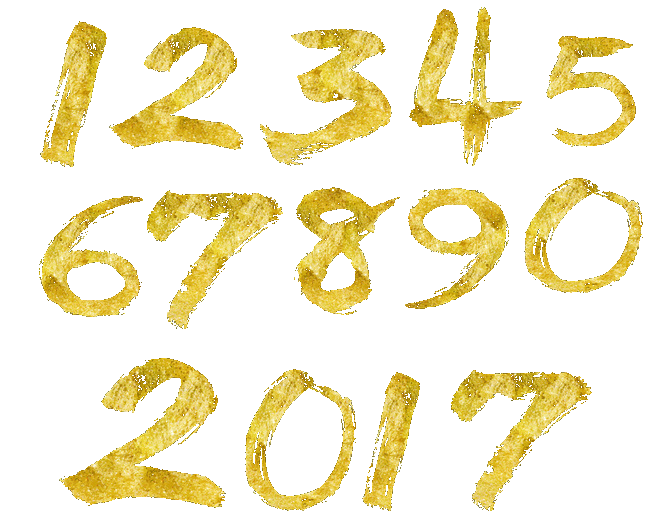 12345
67890
2017